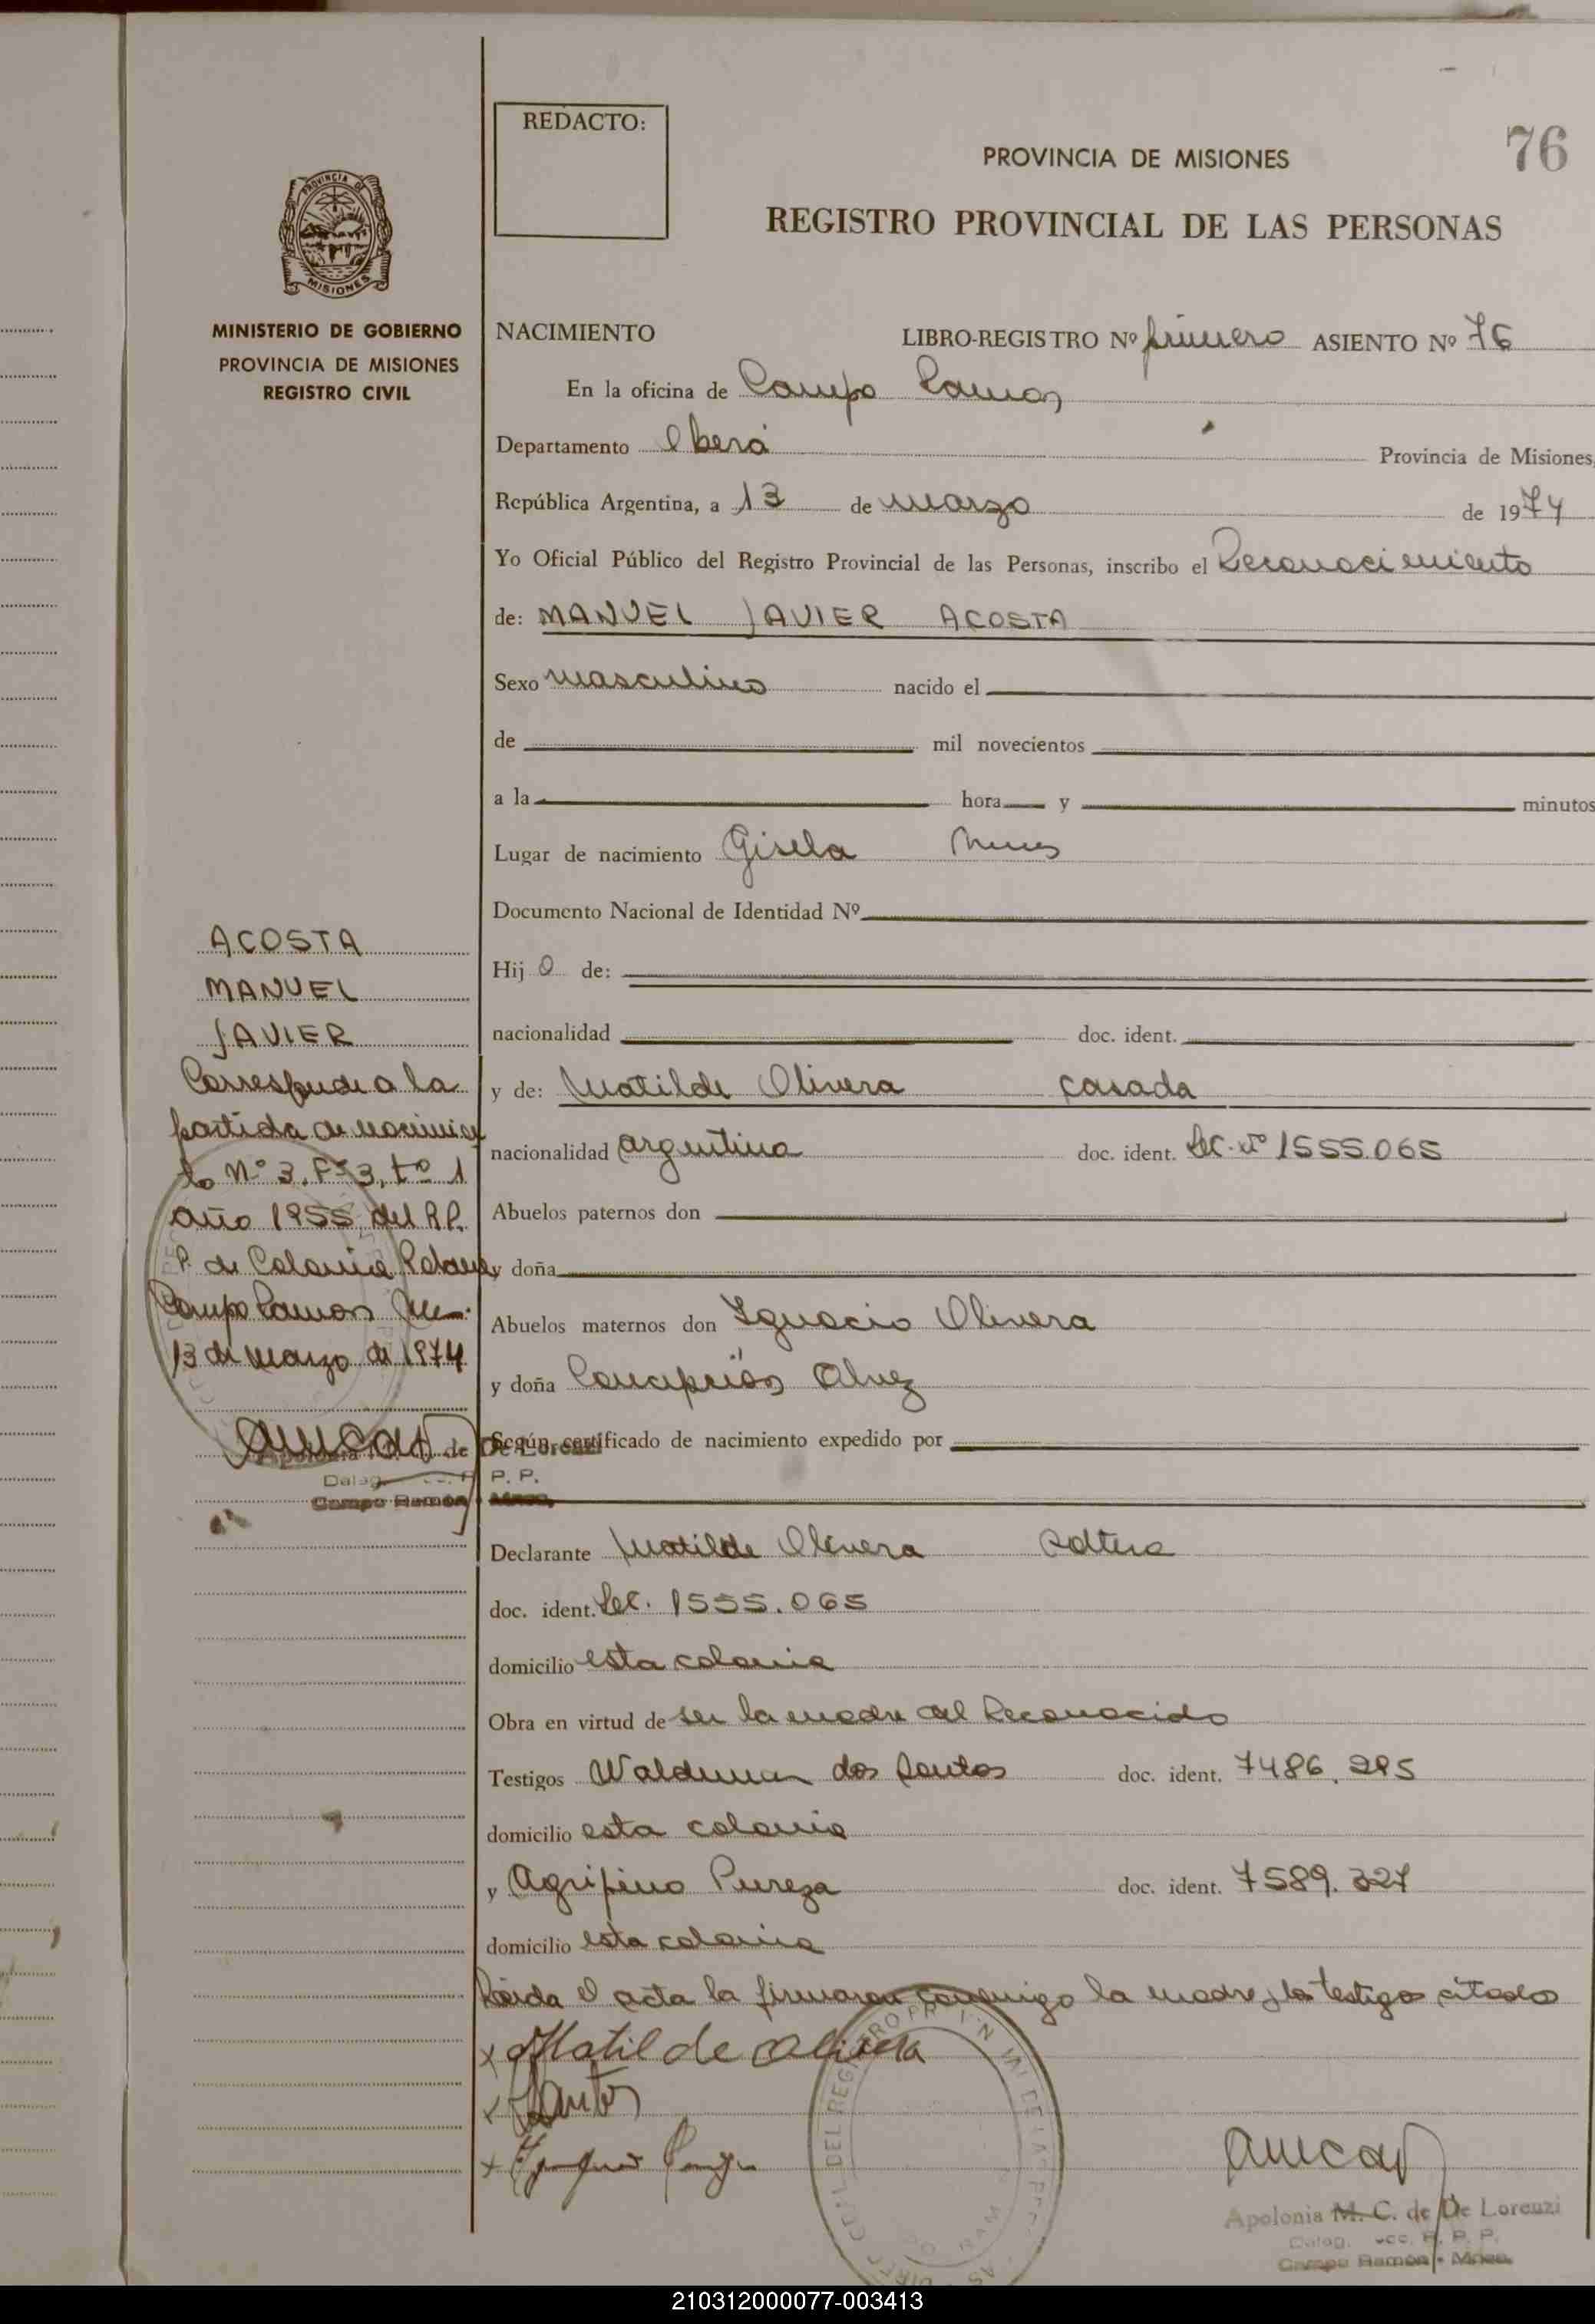 REDACTO:
76
PROVINCIA DE MISIONES
REGISTRO PROVINCIAL DE LAS PERSONAS
PROVINCIA DE
MISIONES
MINISTERIO DE GOBIERNO
PROVINCIA DE MISIONES
REGISTRO CIVIL
NACIMIENTO LIBRO-REGISTRO Nº primero ASIENTO Nº 76
En la oficina de Campo Ramon
Departamento Oberá Provincia de Misiones,
República Argentina, a 13 de marzo de 1974
Yo Oficial Público del Registro Provincial de las Personas, inscribo el Reconocimiento
de: MANUEL JAVIER ACOSTA
Sexo masculino nacido el
de mil novecientos
a la hora y minutos
Lugar de nacimiento Gisela
Documento Nacional de Identidad Nº
Hij o de:
nacionalidad doc. ident.
y de: Matilde Olivera casada
nacionalidad argentina doc. ident. Nº 1555.065
Abuelos paternos don
y doña
Abuelos maternos don Ignacio Olivera
y doña Concepción Alvez
Según certificado de nacimiento expedido por
Declarante Matilde Olivera soltera
doc. ident. 1555.065
domicilio esta colonia
Obra en virtud de ser la madre del Reconocido
Testigos Waldemar dos Santos doc. ident. 7486.295
domicilio esta colonia
y Agripino Pureza doc. ident. 7589.327
domicilio esta colonia
Leida el acta la firmaron conmigo la madre y los testigos citados
x Matilde Olivera
x Santos
x
Apolonia M. C. de De Lorenzi
Campo Ramón - Mnes.
ACOSTA
MANUEL
JAVIER
Corresponde a la
partida de nacimien
to Nº 3. Fº 3, tº 1
año 1955 del R.P.
P. de Colonia
Campo Ramon
13 de marzo de 1974
Apolonia de De Lorenzi
P. P.
Campo Ramón Mnes.
210312000077-003413